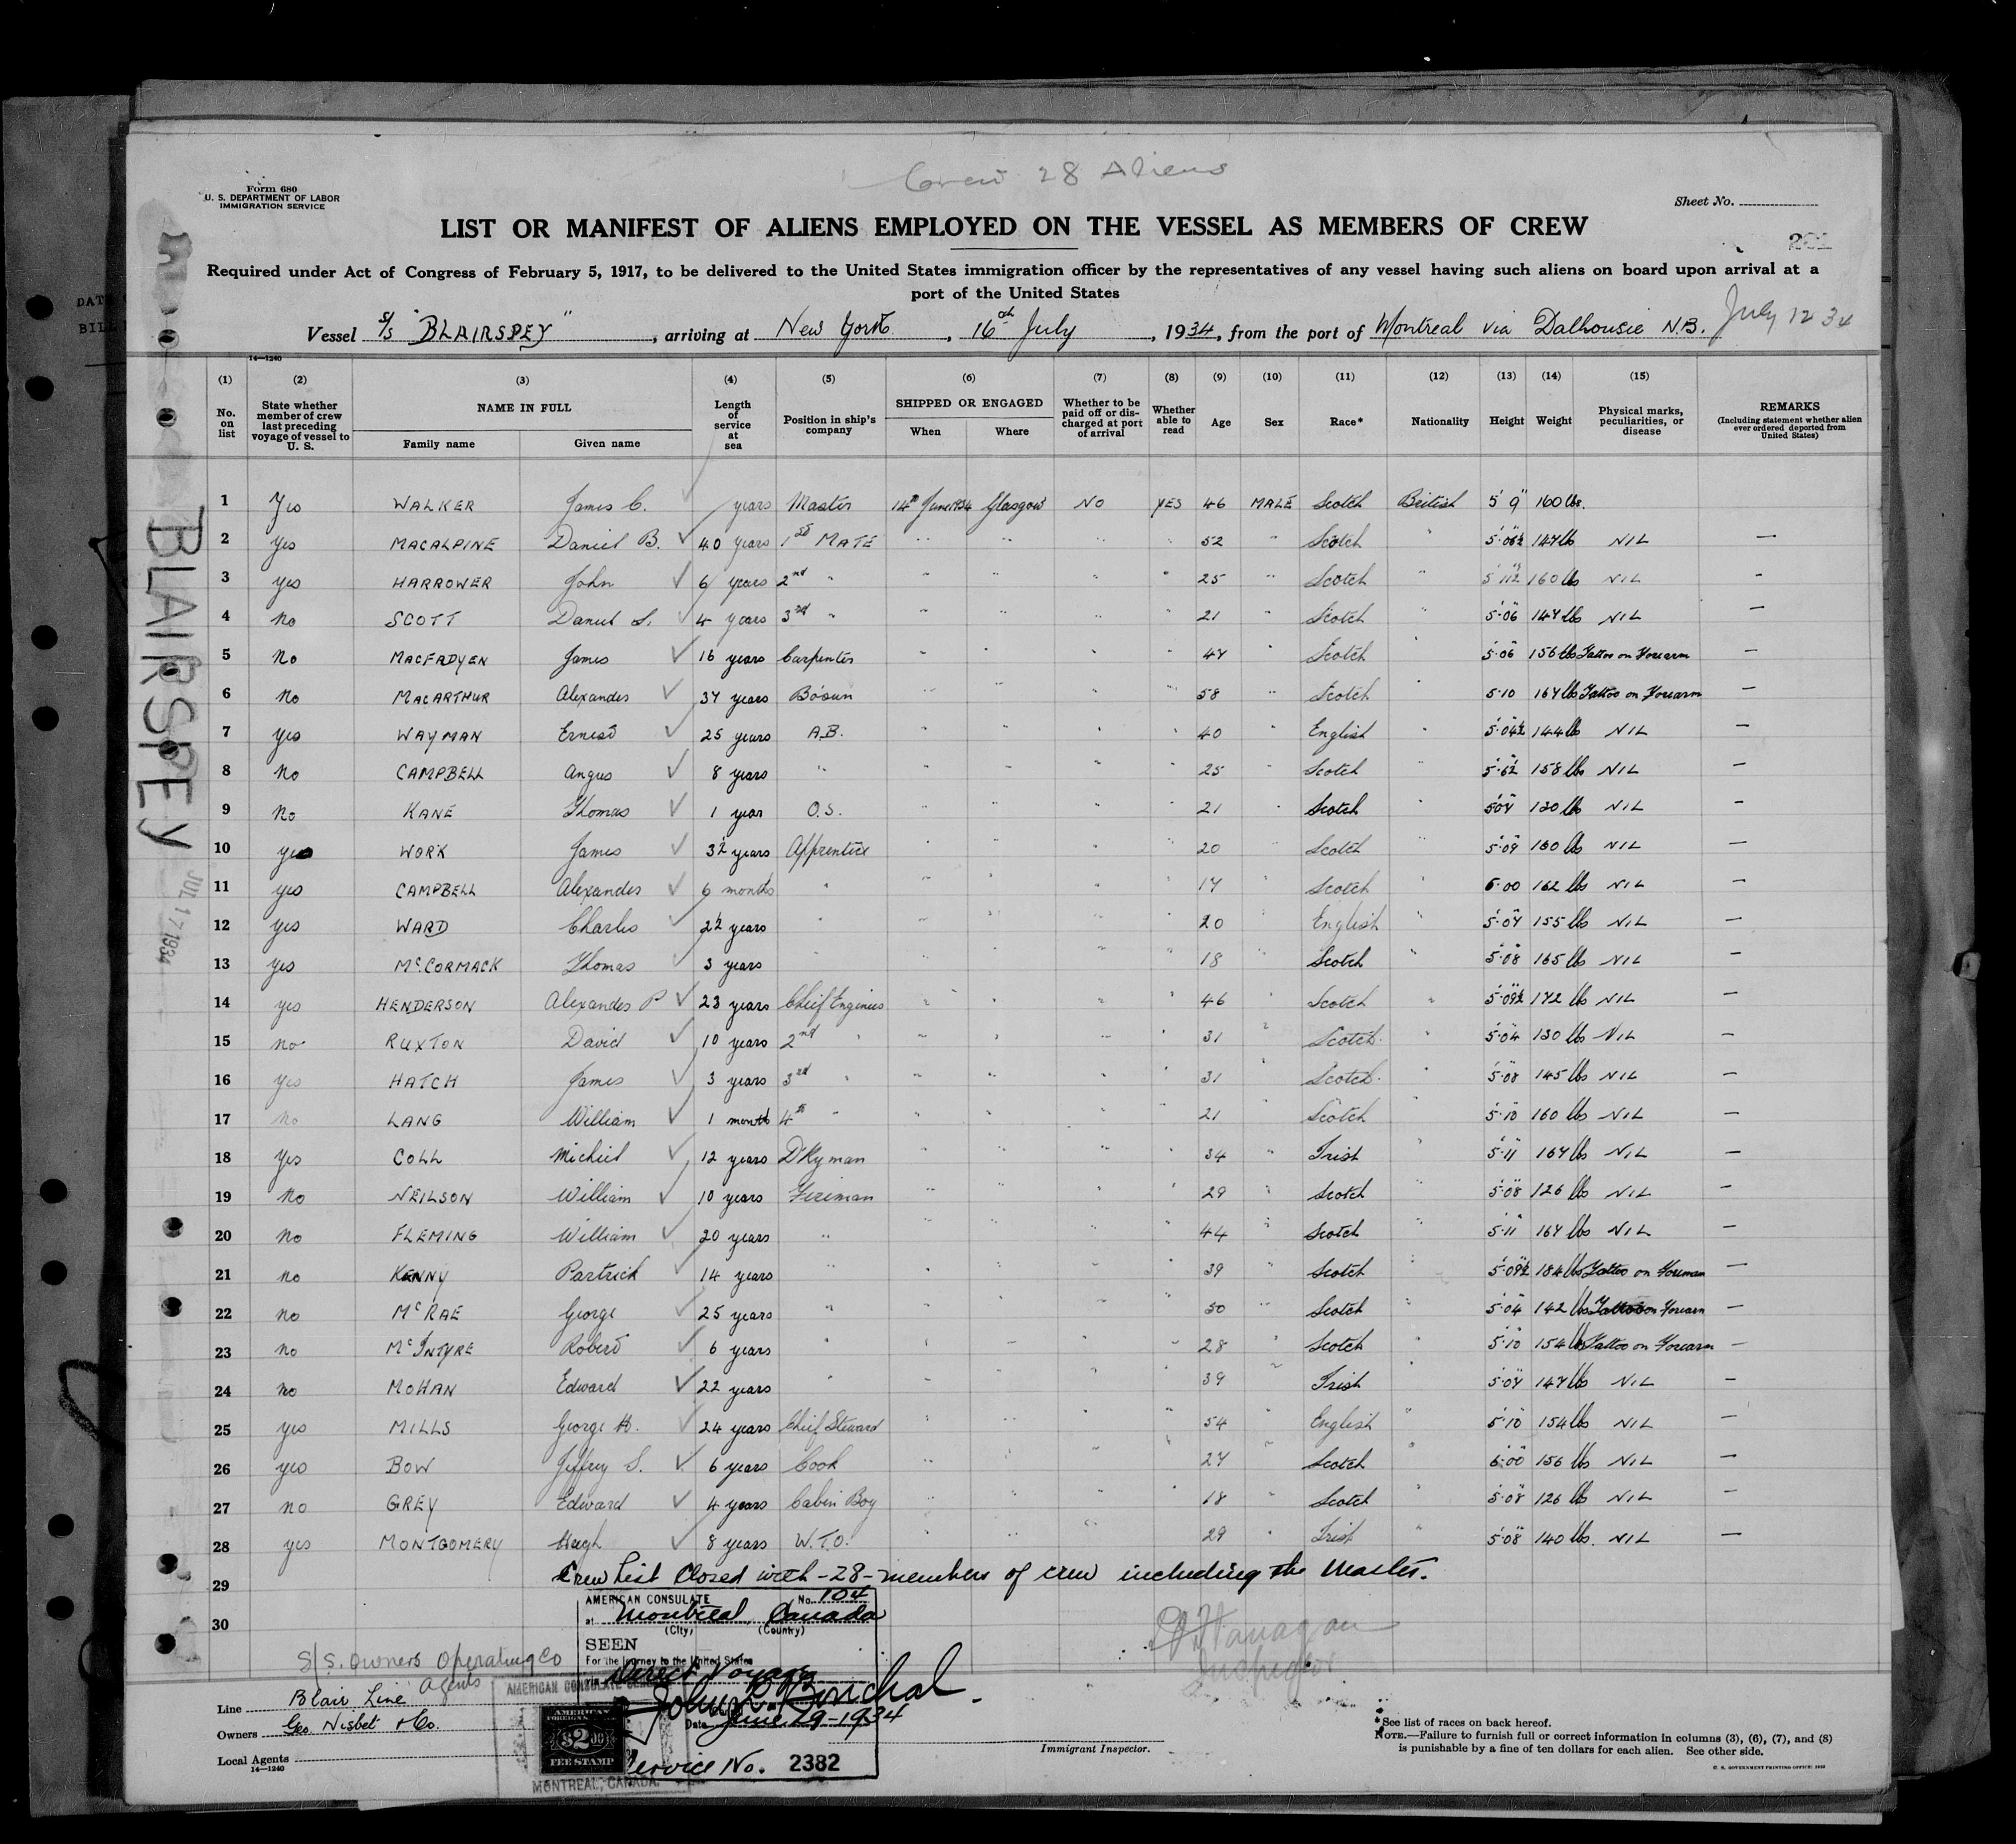 Crew 28 Aliens
Form 680
U. S. DEPARTMENT OF LABOR
IMMIGRATION SERVICE
Sheet No.
LIST OR MANIFEST OF ALIENS EMPLOYED ON THE VESSEL AS MEMBERS OF CREW
Required under Act of Congress of February 5, 1917, to be delivered to the United States immigration officer by the representatives of any vessel having such aliens on board upon arrival at a
port of the United States
Vessel S/S "BLAIRSPEY", arriving at New York, 16th July, 1934, from the port of Montreal via Dalhousie N.B. July 12 34
14—1240
(1) (2) (3) (4) (5) (6) (7) (8) (9) (10) (11) (12) (13) (14) (15)
No. on list | State whether member of crew last preceding voyage of vessel to U. S. | NAME IN FULL Family name Given name | Length of service at sea | Position in ship's company | SHIPPED OR ENGAGED When Where | Whether to be paid off or discharged at port of arrival | Whether able to read | Age | Sex | Race* | Nationality | Height | Weight | Physical marks, peculiarities, or disease | REMARKS (Including statement whether alien ever ordered deported from United States)
1 Yes WALKER James C. years Master 14th June 1934 Glasgow NO YES 46 MALE Scotch British 5' 9" 160 lbs.
2 Yes MACALPINE Daniel B. ✓ 40 years 1st MATE " " " " 52 " Scotch " 5'·06½" 147 lb NIL —
3 Yes HARROWER John ✓ 6 years 2nd " " " " " 25 " Scotch " 5'11½" 160 lbs NIL -
4 No SCOTT Daniel S. ✓ 4 years 3rd " " " " 21 " Scotch " 5'·06" 147 lbs NIL —
5 No MACFADYEN James ✓ 16 years Carpenter " " " " 47 " Scotch " 5'·06" 156 lbs Tattoo on Forearm —
6 No MACARTHUR Alexander ✓ 37 years Bosun " " " " 58 " Scotch " 5·10 167 lbs Tattoo on Forearm —
7 Yes WAYMAN Ernest ✓ 25 years A.B. " " " " 40 " English " 5'·04½" 144 lb NIL —
8 No CAMPBELL Angus ✓ 8 years " " " " " 25 " Scotch " 158 lbs NIL —
9 No KANE Thomas ✓ 1 year O.S. " " " " 21 " Scotch " 5'07" 130 lb NIL —
10 Yes WORK James ✓ 3½ years Apprentice " " " " 20 " Scotch " 5'·09" lbs NIL —
11 Yes CAMPBELL Alexander ✓ 6 months " " " " " 17 " Scotch " 6·00 162 lbs NIL —
12 Yes WARD Charles ✓ 2½ years " " " " " 20 " English " 5'·07" 155 lbs NIL —
13 Yes McCORMACK Thomas ✓ 3 years " " " " " 18 " Scotch " 5'·08" 165 lbs NIL —
14 Yes HENDERSON Alexander P ✓ 23 years Chief Engineer " " " " 46 " Scotch " 5'·09½" 172 lbs NIL —
15 No RUXTON David ✓ 10 years 2nd " " " " " 31 " Scotch " 5'·04" 130 lbs NIL —
16 Yes HATCH James ✓ 3 years 3rd " " " " " 31 " Scotch " 5'·08" 145 lbs NIL —
17 No LANG William ✓ 1 month 4th " " " " " 21 " Scotch " 5'·10" 160 lbs NIL —
18 Yes COLL Micheil ✓ 12 years D'Kyman " " " " 34 " Irish " 5'·11" 167 lbs NIL —
19 No NEILSON William ✓ 10 years Fireman " " " " 29 " Scotch " 5'·08" 126 lbs NIL —
20 No FLEMING William ✓ 20 years " " " " " 44 " Scotch " 5'·11" 167 lbs NIL —
21 No KENNY Partrick ✓ 14 years " " " " " 39 " Scotch " 5'·09½" 184 lbs Tattoo on Foreman —
22 No McRAE George ✓ 25 years " " " " " 50 " Scotch " 5'·04" 142 lbs Tattoo on Forearm —
23 No McINTYRE Robert ✓ 6 years " " " " " 28 " Scotch " 5'·10" 154 lbs Tattoo on Forearm —
24 No MOHAN Edward ✓ 22 years " " " " " 39 " Irish " 5'·07" 147 lbs NIL —
25 Yes MILLS George H. ✓ 24 years Chief Steward " " " " 54 " English " 5'·10" 154 lbs NIL —
26 Yes BOW Jeffrey S. ✓ 6 years Cook " " " " 27 " Scotch " 6'·00" 156 lbs NIL —
27 No GREY Edward ✓ 4 years Cabin Boy " " " " 18 " Scotch " 5'·08" 126 lbs NIL —
28 Yes MONTGOMERY Hugh ✓ 8 years W.T.O. " " " 29 " Irish " 5'·08" 140 lbs. NIL —
Crew List Closed with -28- members of crew including the Master.
29
30
BLAIRSPEY
JUL 17 1934
AMERICAN CONSULATE No. 104
at Montreal, Canada
(City) (Country)
SEEN
For the journey to the United States
via Direct Voyage
Date June 29-1934
Service No. 2382
AMERICAN CONSULATE GENERAL
AMERICAN
FOREIGN SERVICE
$2.00
FEE STAMP
MONTREAL, CANADA.
Flanagan
Inspector
S/S. Owners Operating Co
Agents
Line Blair Line
Owners Geo. Nisbet & Co.
Local Agents
14—1240
Immigrant Inspector.
*See list of races on back hereof.
NOTE.—Failure to furnish full or correct information in columns (3), (6), (7), and (8)
is punishable by a fine of ten dollars for each alien. See other side.
U. S. GOVERNMENT PRINTING OFFICE